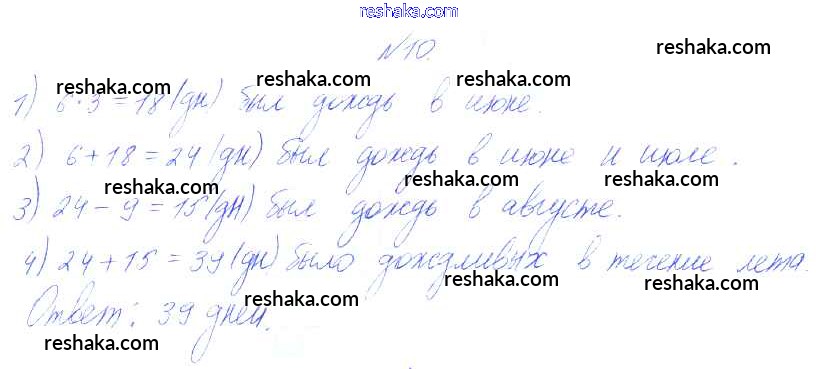 reshaka.com
№10. reshaka.com
reshaka.com reshaka.com reshaka.com
1) 6·3=18(дн) был дождь в июне.
2) 6+18=24(дн) был дождь в июне и июле.
reshaka.com reshaka.com reshaka.com
3) 24-9=15(дн) был дождь в августе.
4) 24+15=39(дн) было дождливых в течение лета.
reshaka.com reshaka.com reshaka.com
Ответ: 39 дней.
reshaka.com